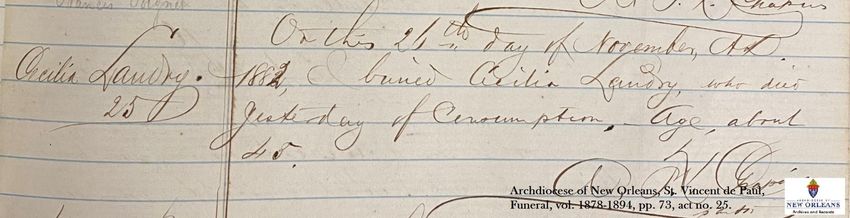 On this 26th day of November, A.D.
Cecilia Landry. 1882, I buried Cecilia Landry, who died
25 yesterday of Consumption, - Age, about
45.
Archdiocese of New Orleans, St. Vincent de Paul,
Funeral, vol. 1878-1894, pp. 73, act no. 25.
ARCHDIOCESE OF
NEW ORLEANS
Archives and Records